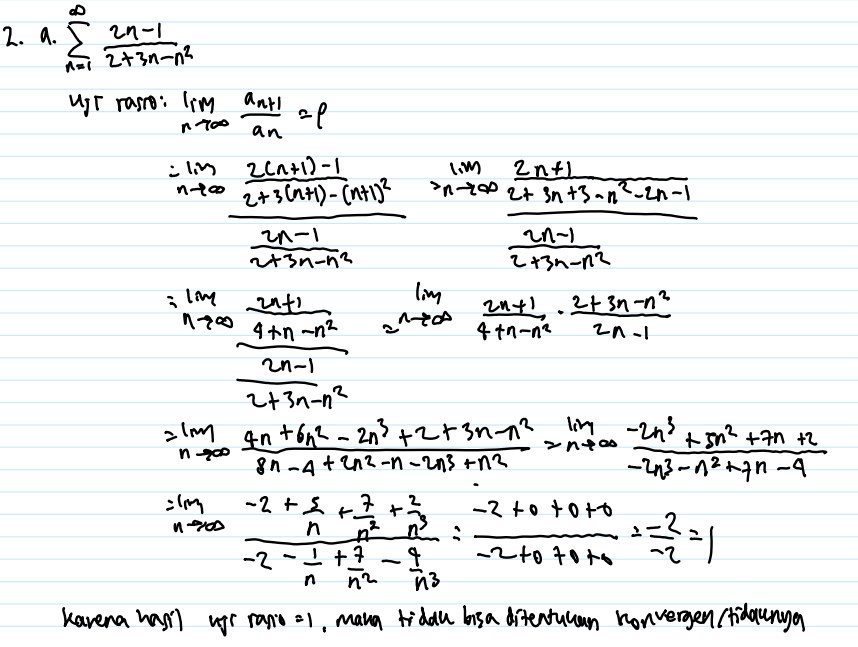 2. a. ∞ Σ n=1 (2n-1)/(2+3n-n²)
Uji rasio: lim n→∞ a_{n+1}/a_n = ρ
= lim n→∞ ((2(n+1)-1)/(2+3(n+1)-(n+1)²))/((2n-1)/(2+3n-n²)) = lim n→∞ ((2n+1)/(2+3n+3-n²-2n-1))/((2n-1)/(2+3n-n²))
= lim n→∞ ((2n+1)/(4+n-n²))/((2n-1)/(2+3n-n²)) = lim n→∞ (2n+1)/(4+n-n²) · (2+3n-n²)/(2n-1)
= lim n→∞ (4n+6n²-2n³+2+3n-n²)/(8n-4+2n²-n-2n³+n²) = lim n→∞ (-2n³+5n²+7n+2)/(-2n³-n²+7n-4)
= lim n→∞ (-2+5/n+7/n²+2/n³)/(-2-1/n+7/n²-4/n³) = (-2+0+0+0)/(-2+0+0+0) = -2/-2 = 1
Karena hasil uji rasio = 1, maka tidak bisa ditentukan konvergen/tidaknya